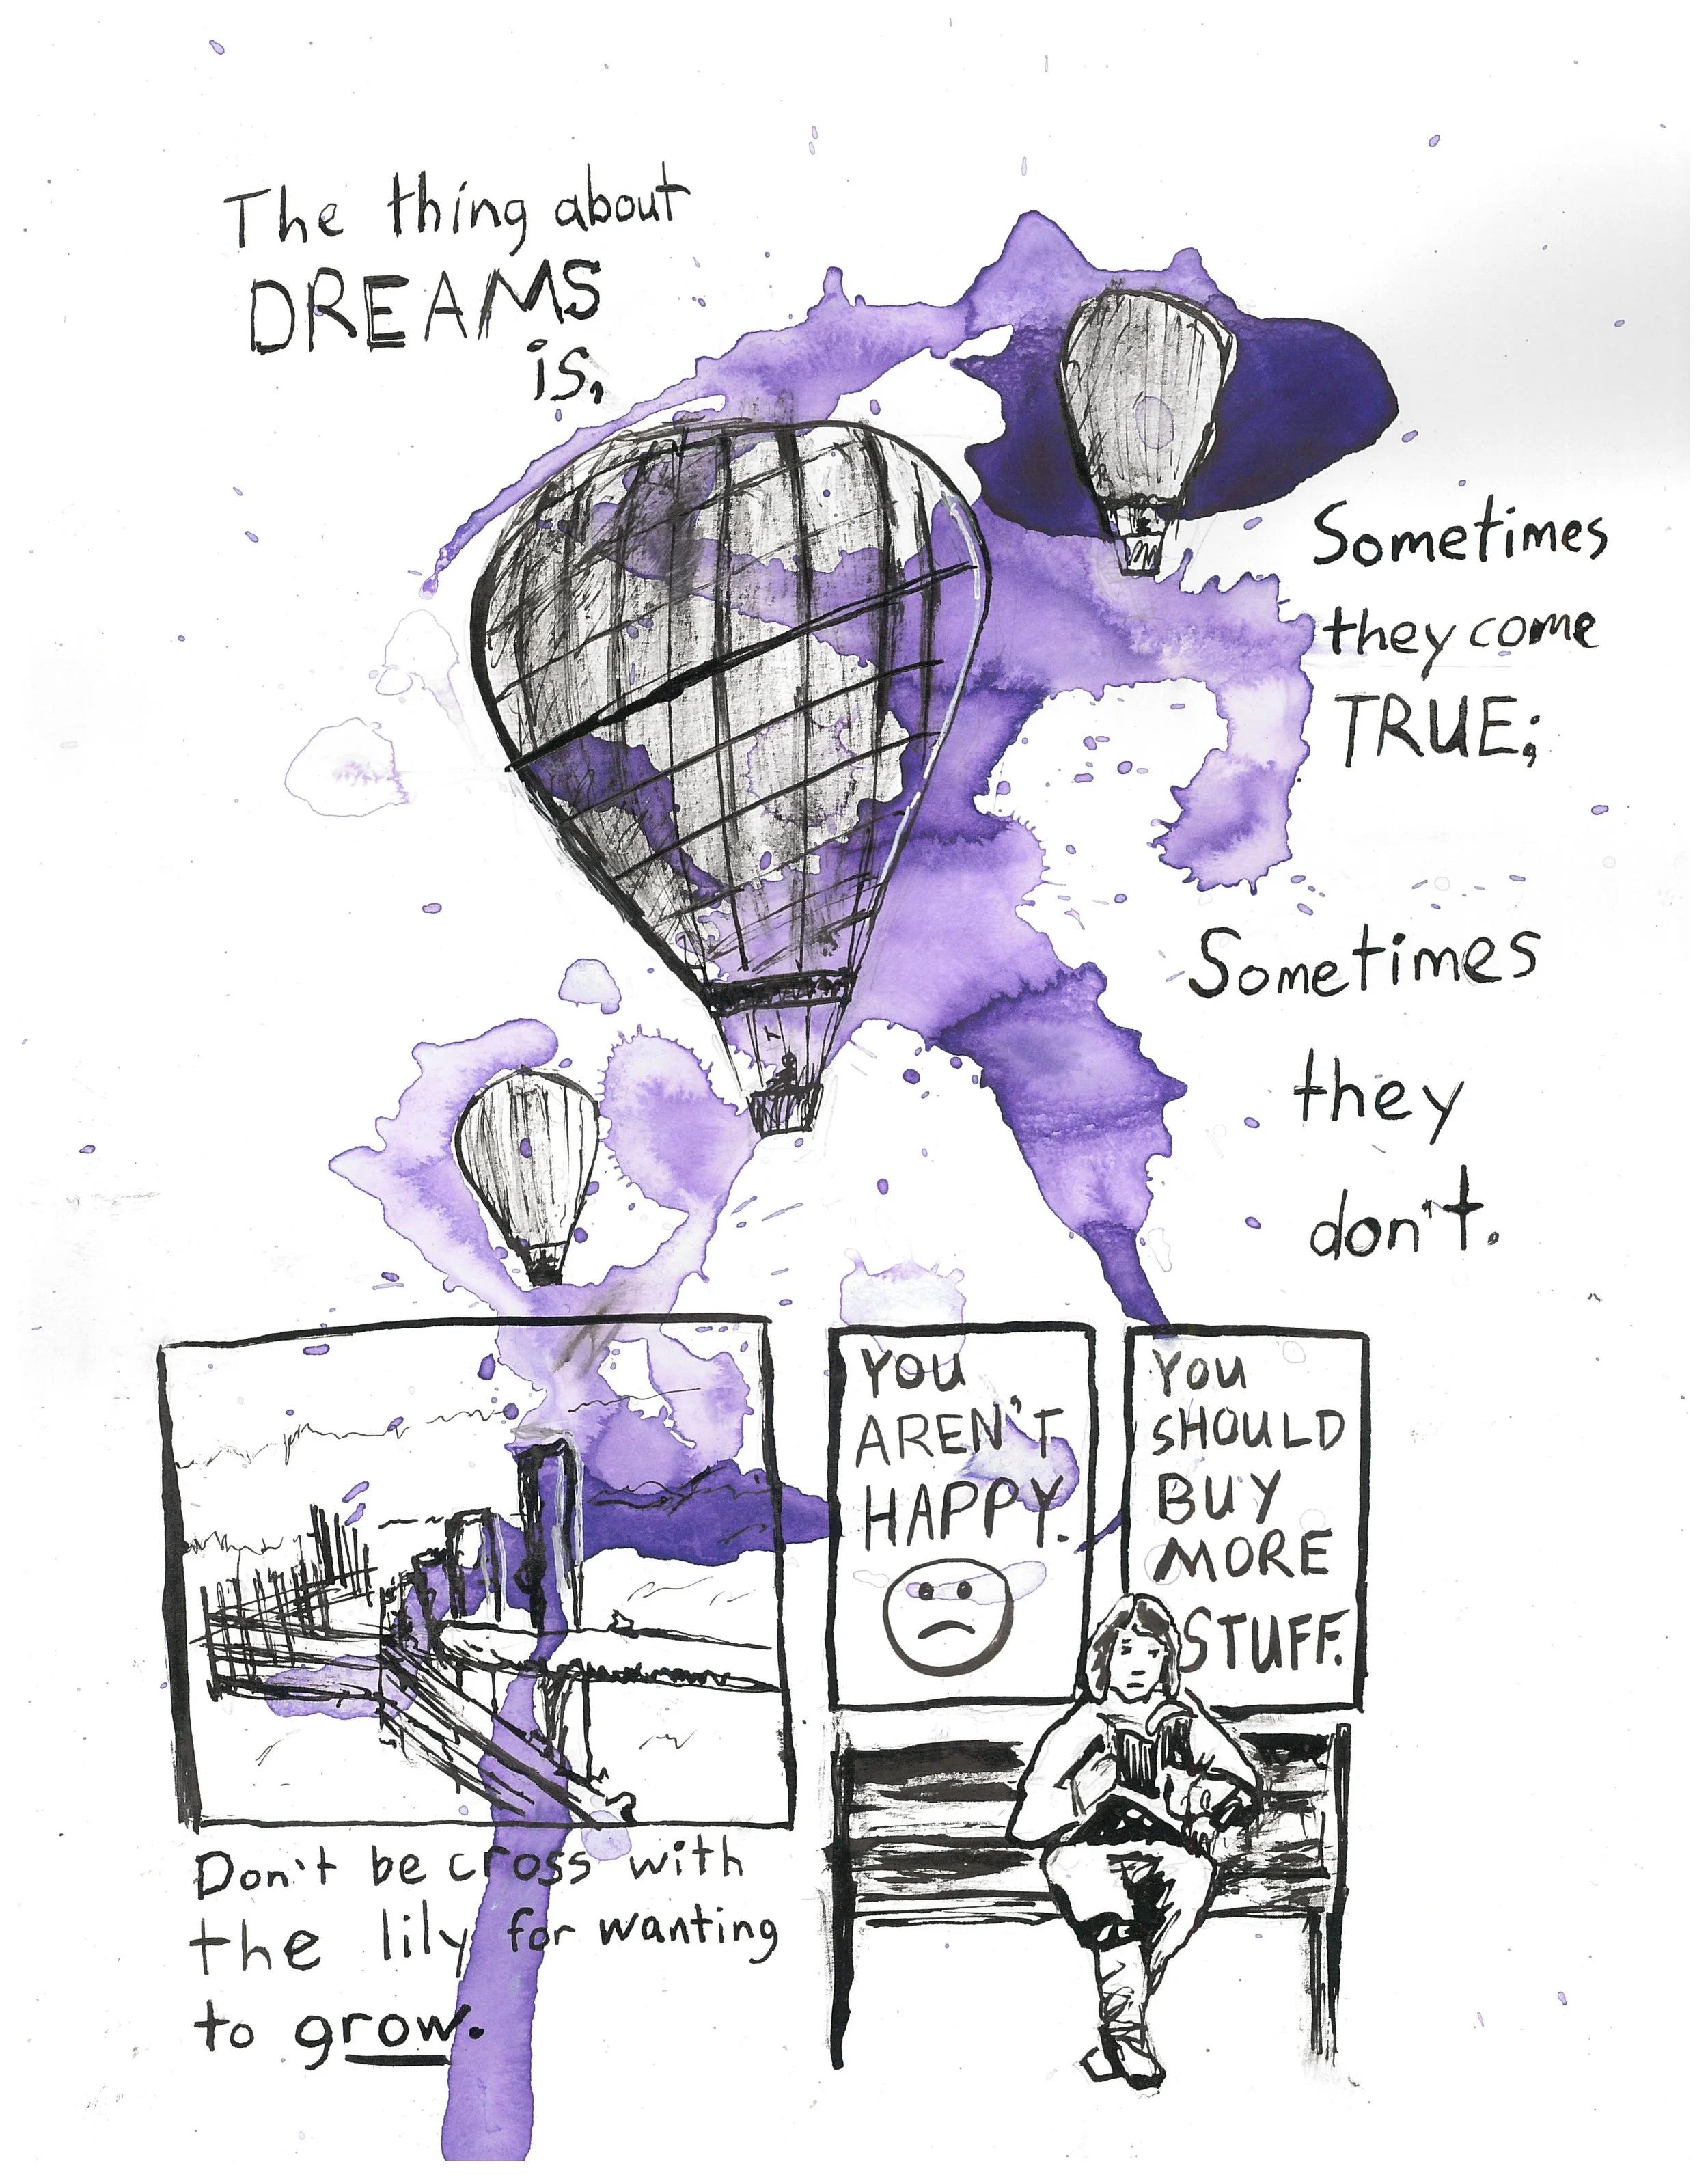 The thing about
DREAMS
is,
Sometimes
they come
TRUE;
Sometimes
they
don't.
YOU
AREN'T
HAPPY.
YOU
SHOULD
BUY
MORE
STUFF.
Don't be cross with
the lily for wanting
to grow.